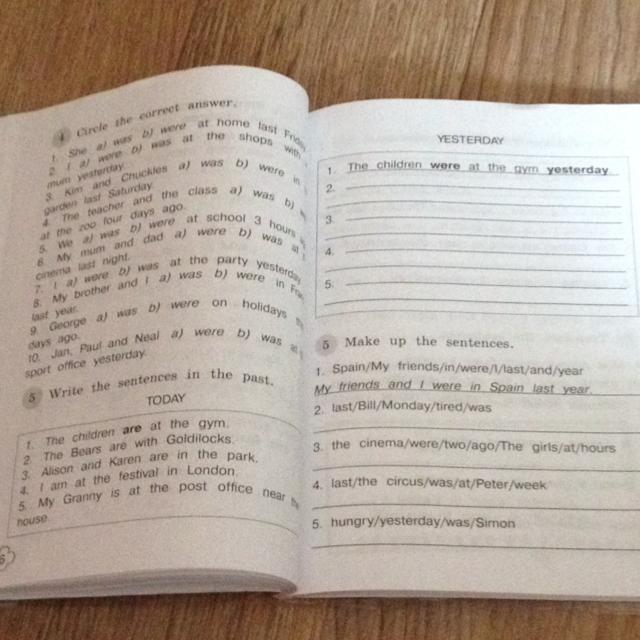 4 Circle the correct answer.
1. She a) was b) were at home last
2. I a) were b) was at the shops with
mum yesterday.
3. Kim and Chuckles a) was b) were in
garden last Saturday.
4. The teacher and the class a) was b)
at the zoo four days ago.
5. We a) was b) were at school 3 hours
6. My mum and dad a) were b) was at
cinema last night.
7. I a) were b) was at the party yesterday
8. My brother and I a) was b) were in
last year.
9. George a) was b) were on holidays
days ago.
10. Jan, Paul and Neal a) were b) was at
sport office yesterday.
5 Write the sentences in the past.
TODAY
1. The children are at the gym.
2. The Bears are with Goldilocks.
3. Alison and Karen are in the park.
4. I am at the festival in London.
5. My Granny is at the post office near
house.
YESTERDAY
1. The children were at the gym yesterday.
2.
3.
4.
5.
5 Make up the sentences.
1. Spain/My friends/in/were/I/last/and/year
My friends and I were in Spain last year.
2. last/Bill/Monday/tired/was
3. the cinema/were/two/ago/The girls/at/hours
4. last/the circus/was/at/Peter/week
5. hungry/yesterday/was/Simon